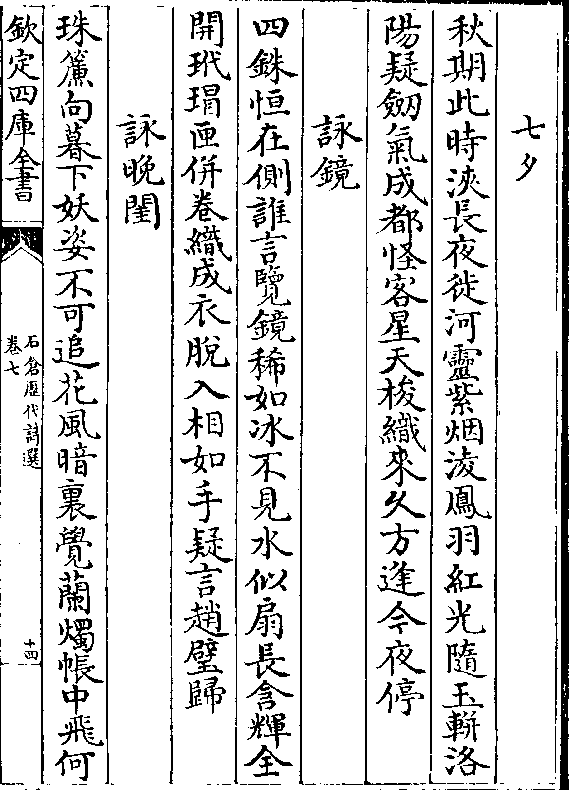 七夕
秋期此時浹長夜徙河靈紫烟淩鳳羽紅光隨玉軿洛
陽疑劒氣成都怪客星天梭織來久方逢今夜停
詠鏡
四銖恒在側誰言覽鏡稀如冰不見水似扇長含輝全
開玳瑁匣併卷織成衣脫入相如手疑言趙璧歸
詠晚閨
珠簾向暮下妖姿不可追花風暗裏覺蘭燭帳中飛何
欽定四庫全書
石倉歷代詩選
卷七
十四